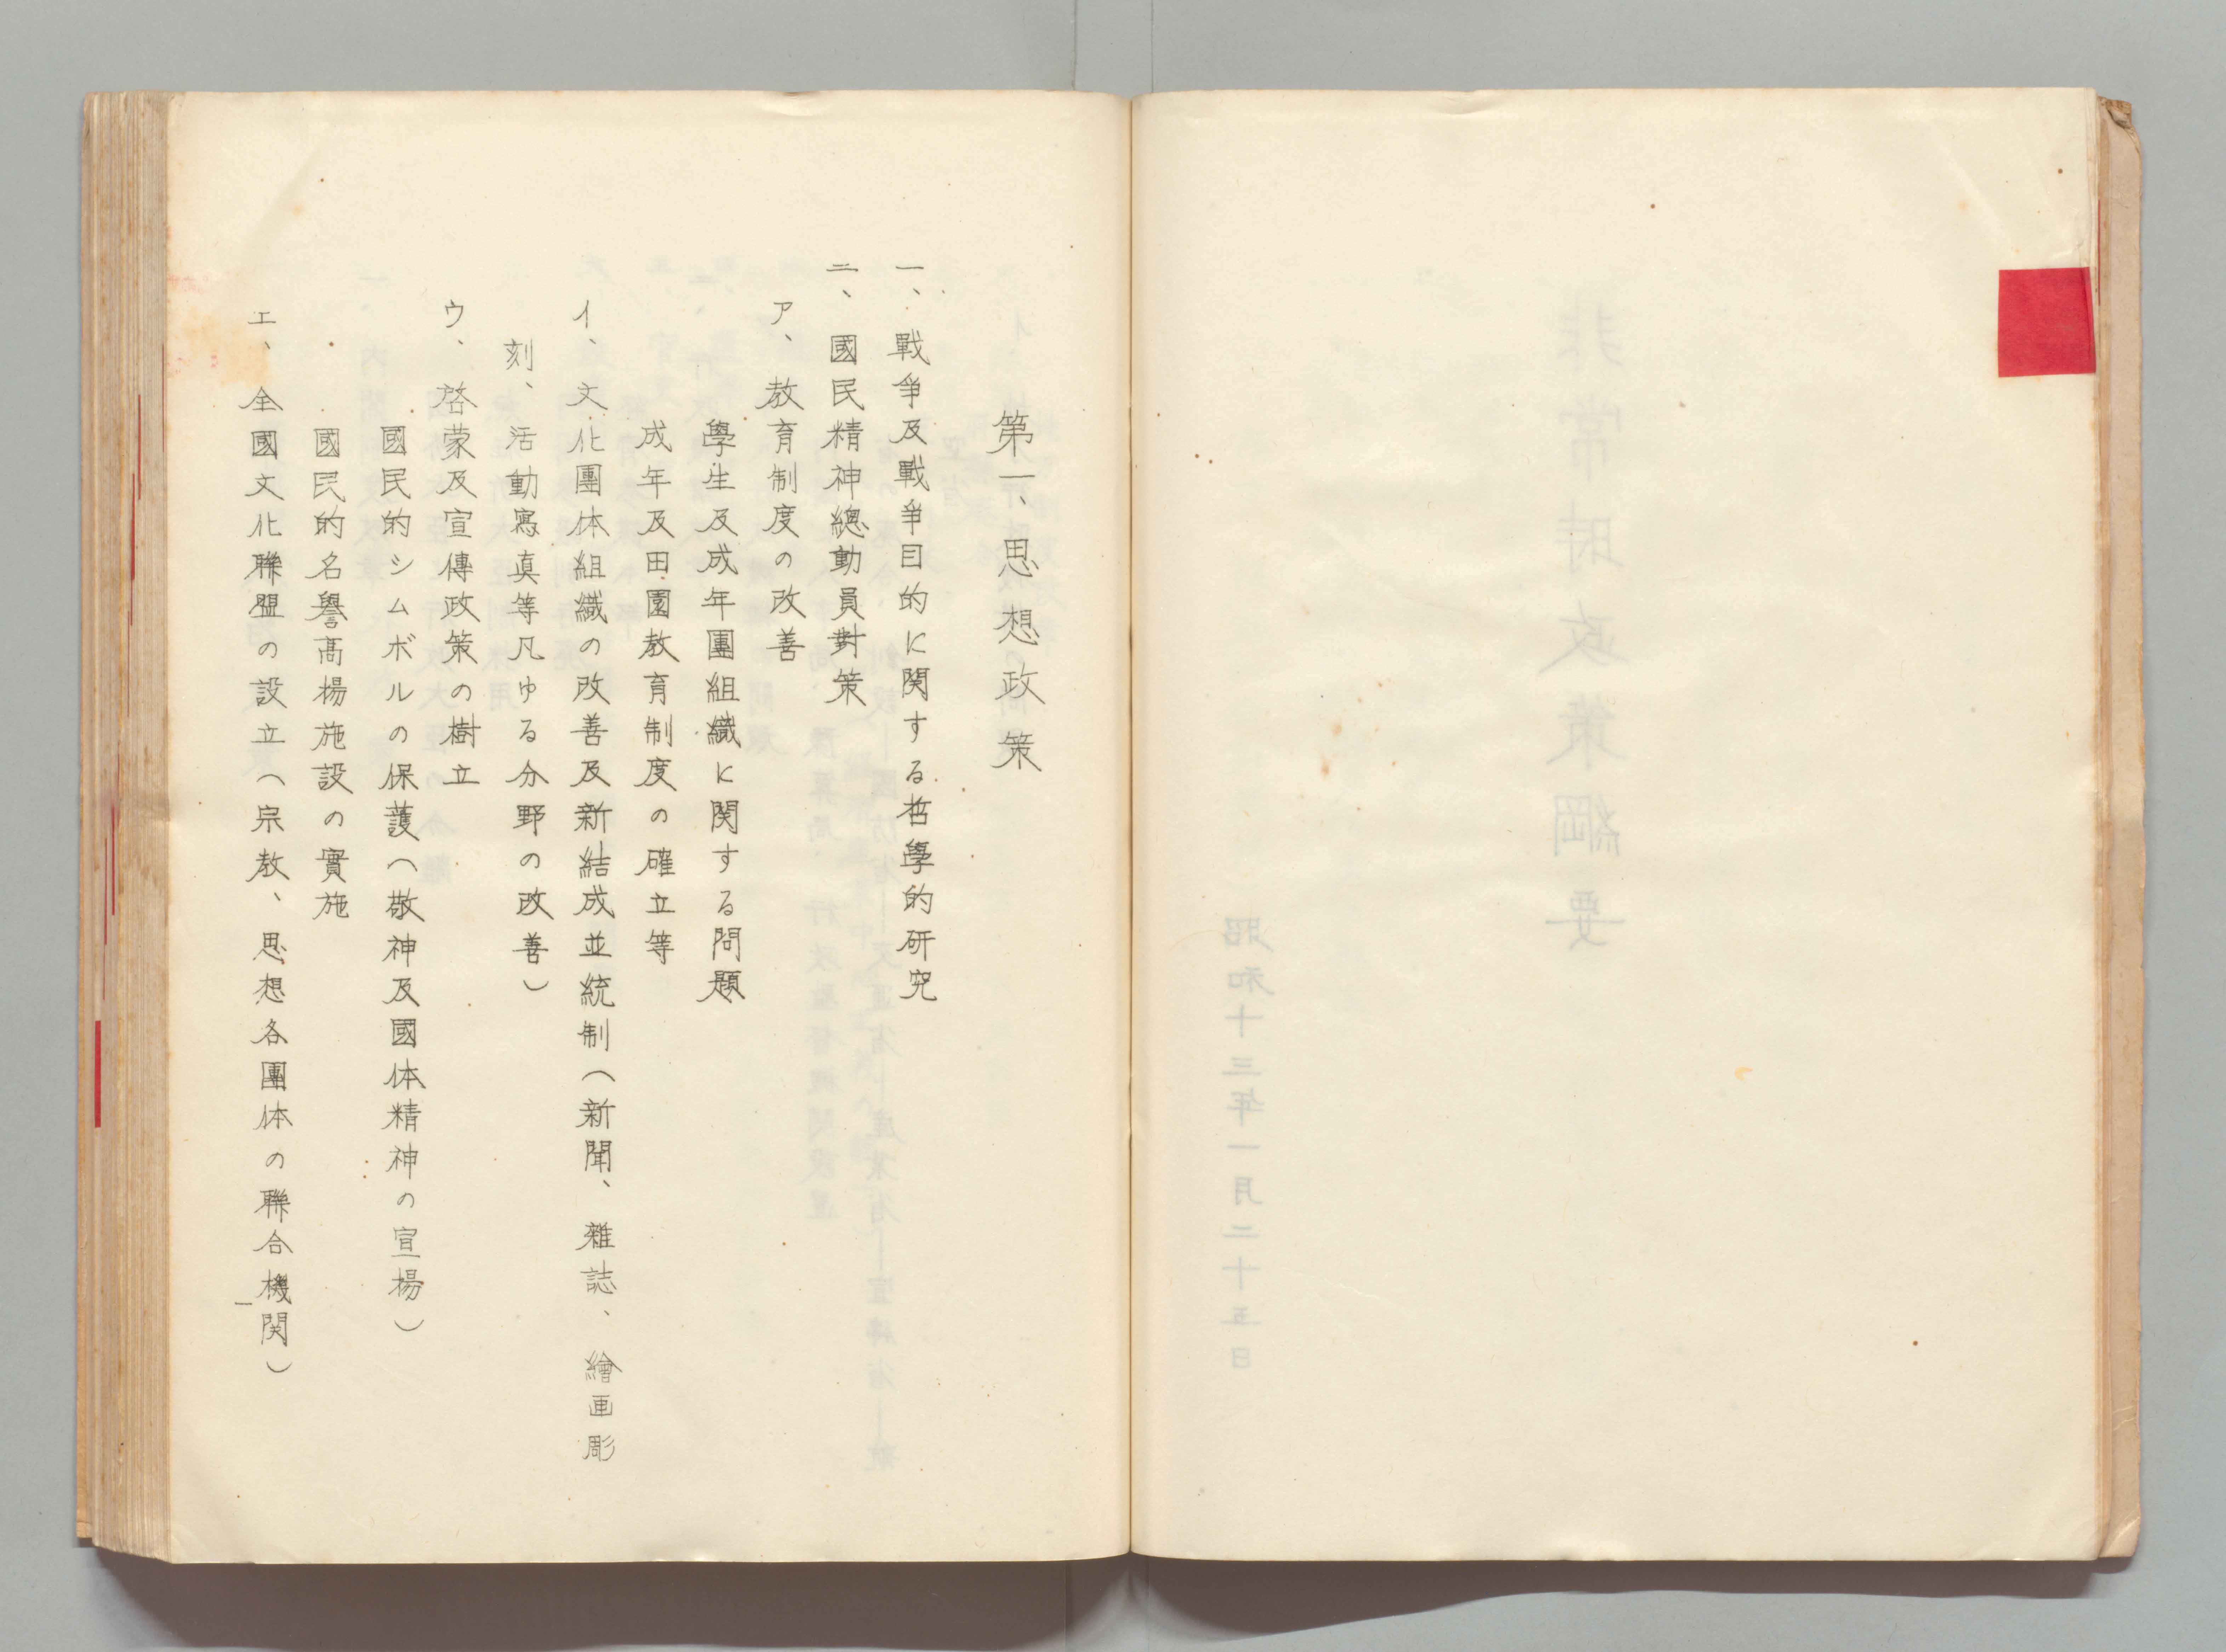 第一、思想政策
一、戰爭及戰爭目的に関する哲學的研究
二、國民精神總動員對策
ア、教育制度の改善
學生及成年團組織に関する問題
成年及田園教育制度の確立等
イ、文化團体組織の改善及新結成並統制（新聞、雜誌、繪画彫
刻、活動寫真等凡ゆる分野の改善）
ウ、啓蒙及宣傳政策の樹立
國民的シムボルの保護（敬神及國体精神の宣楊）
國民的名譽高楊施設の實施
エ、全國文化聯盟の設立（宗教、思想各團体の聯合機関）
一